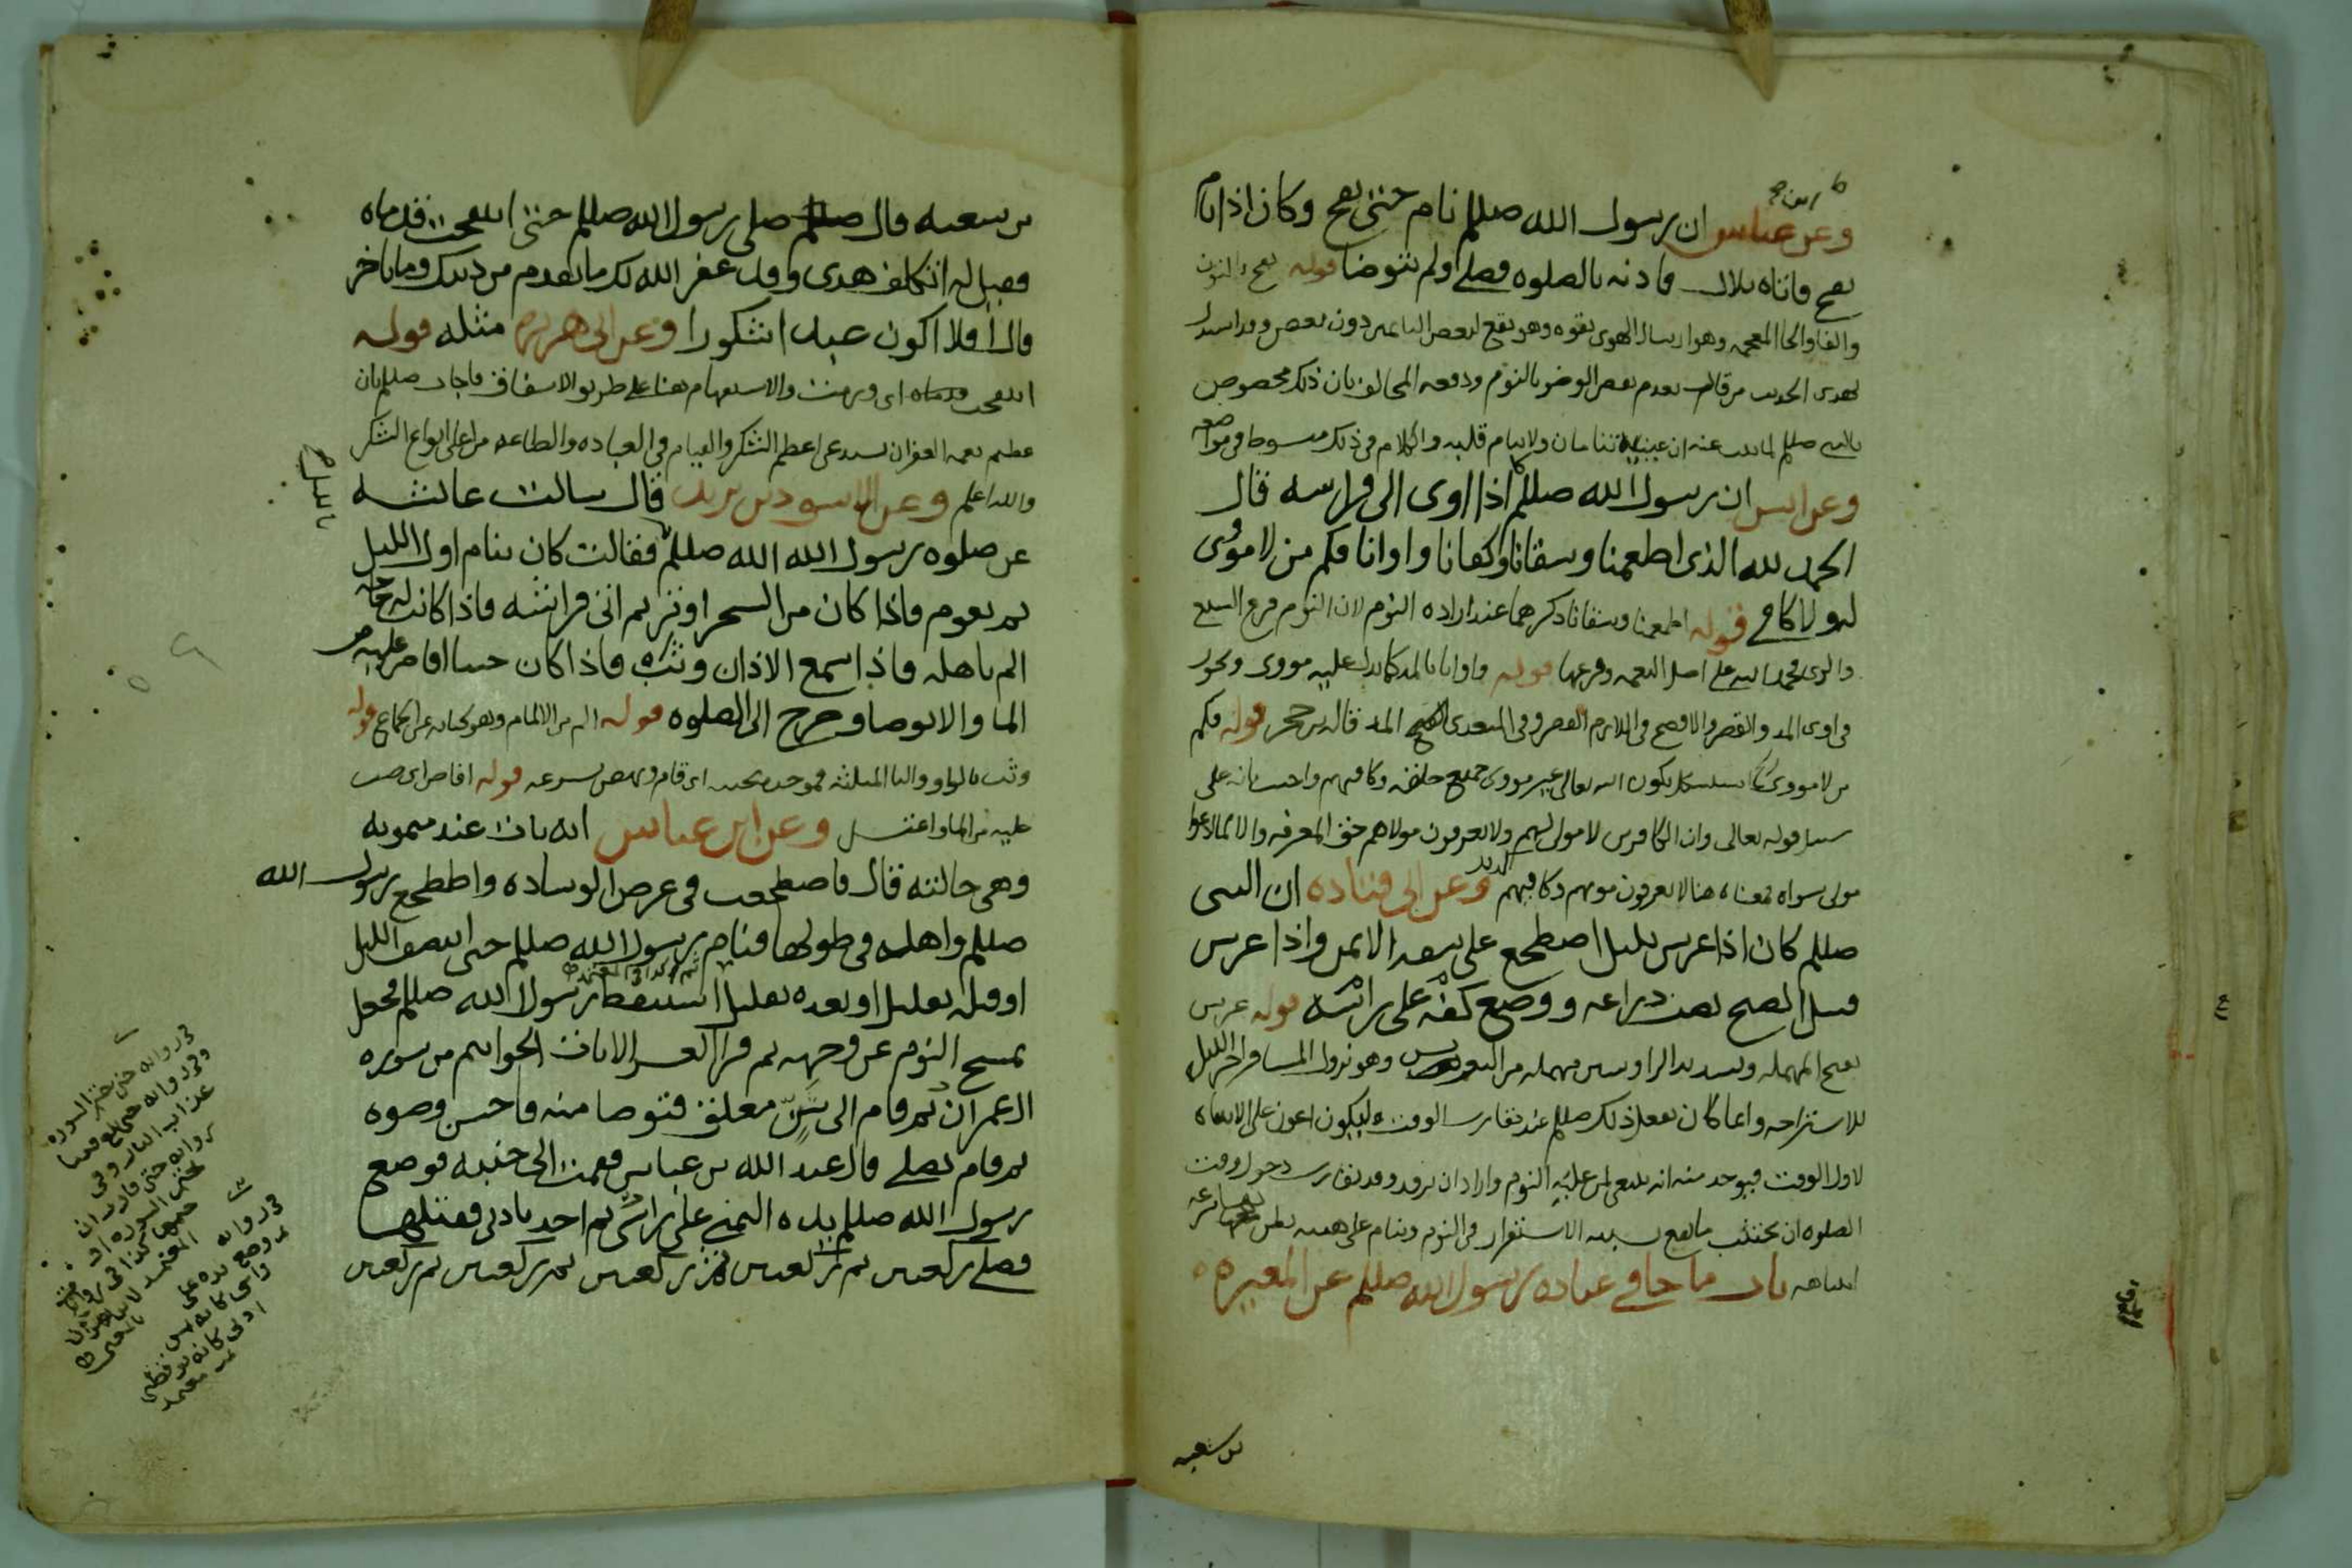 ابن
وعن عباس ان رسول الله صللم نام حتى نفخ وكان اذا نام
نفخ فاتاه بلال فاذنه بالصلوه فصلى ولم يتوضا قوله نفخ بالنون
والفا والخا المعجمه وهو ارسال الهوى بقوه وهو يقع لبعض النايمين دون بعض وقد استدل
بهذى الحديث من قال بعدم نقض الوضو بالنوم ودفعه المخالف بان ذلك مخصوص
بالنبي صللم لما ثبت عنه ان عينيه تنامان ولا ينام قلبه والكلام في ذلك مبسوط في مواضعه
وعن انس ان رسول الله صللم كان اذا اوى الى فراشه قال
الحمد لله الذى اطعمنا وسقانا وكفانا واوانا فكم من لا مؤى
له ولا كافى قوله اطعمنا وسقانا ذكرهما عند اراده النوم لان النوم فرع الشبع
والرى فحمد الله على اصل النعمه وفرعها قوله واوانا بالمد كما يدل عليه مووى ويجوز
فى اوى المد والقصر والافصح فى اللازم القصر وفى المتعدى المد قاله بن حجر قوله فكم
من لا مووى استشكل بكون الله تعالى غير مووى جميع خلقه وكافيهم واجيب بانه على
سبيل قوله تعالى وان الكافرين لا مولى لهم ولا يعرفون مولاهم حق المعرفه والا فالله
مولى سواه فمعناه هنا لا يعرفون موويهم وكافيهم وعن ابى قتاده ان النبى
صللم كان اذا عرس بليل اضطجع على شقه الايمن واذا عرس
قبل الصبح نصب ذراعه ووضع كفه على راسه قوله عرس
بفتح المهمله وتشديد الرا وسين مهمله من التعريس وهو نزول المسافر اخر الليل
للاستراحه وانما كان يفعل ذلك صللم عند تقارب الوقت ليكون اعون على الانتباه
لاول الوقت فيوخذ منه انه ينبغى لمن غلبه النوم واراد ان يرقد وقد تقارب دخول وقت
الصلوه ان يجتنب ما يقع بسببه الاستغراق فى النوم وينام على هيئه يظن بها سرعه
انتباهه باب ما جا فى عباده رسول الله صللم عن المغيره
بن شعبه
بن شعبه قال صلى رسول الله صللم حتى انتفخت قدماه
فقيل له اتتكلف هذى وقد غفر الله لك ما تقدم من ذنبك وما تاخر
قال افلا اكون عبدا شكورا وعن ابى هريره مثله قوله
انتفخت قدماه اى ورمت والاستفهام هنا على طريق الاشفاق فاجاب صللم بان
عظيم نعمه الغفران تستدعى اعظم الشكر والقيام فى العباده والطاعه من اعلى انواع الشكر
والله اعلم وعن الاسود بن يزيد قال سالت عائشه
عن صلوه رسول الله الله صللم فقالت كان ينام اول الليل
ثم يقوم فاذا كان من السحر اوتر ثم اتى فراشه فاذا كانت له حاجه
الم باهله فاذا سمع الاذان وثب فاذا كان جنبا افاض عليه من
الما والا توضا وخرج الى الصلوه قوله الم من الالمام وهو كنايه عن الجماع قوله
وثب بالواو والثا المثلثه فموحده تحتيه اى قام ونهض بسرعه قوله افاض اى صب
عليه من الما واغتسل وعن ابن عباس انه بات عند ميمونه
وهى خالته قال فاضطجعت فى عرض الوساده واضطجع رسول الله
صللم واهله فى طولها فنام رسول الله صللم حتى انتصف الليل
او قبله بقليل او بعده بقليل استيقظ رسول الله صللم فجعل
يمسح النوم عن وجهه ثم قرا العشر الايات الخواتيم من سوره
ال عمران ثم قام الى شن معلق فتوضا منه فاحسن وضوه
ثم قام يصلى قال عبد الله بن عباس فقمت الى جنبه فوضع
رسول الله صللم يده اليمنى على راسى ثم اخذ باذنى ففتلها
فصلى ركعتين ثم ركعتين ثم ركعتين ثم ركعتين ثم ركعتين
فى روايه حتى ختم السوره
وفى روايه
عذاب النار وفى
روايه حتى قارب ان
يختم السوره او
ختمها
فى روايه
ووضع يده على
راسى